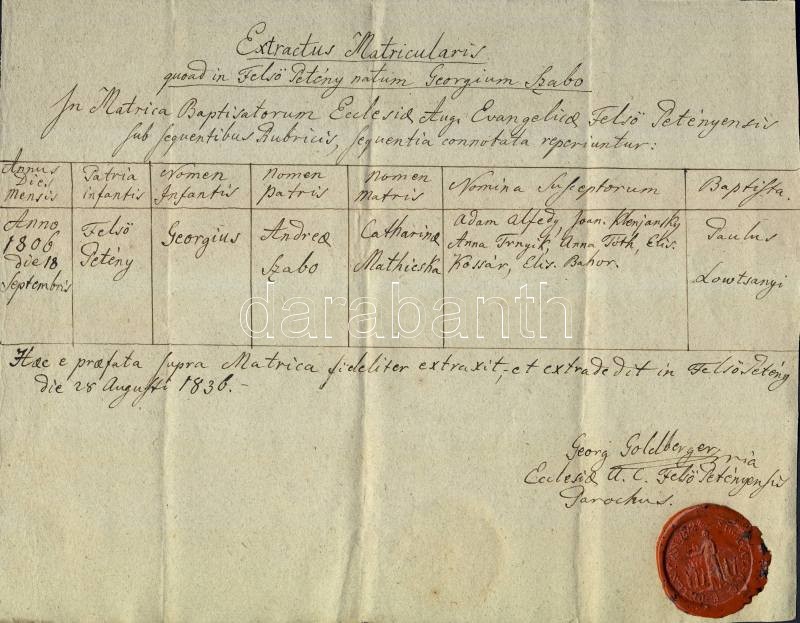 Extractus Matricularis
quoad in Felsö Petény natum Georgium Szabo
In Matrica Baptisatorum Ecclesiæ Aug. Evangelicæ Felsö Petényensis
sub sequentibus Rubricis, sequentia connotata reperiuntur:
Annus Dies Mensis
Patria infantis
Nomen Infantis
Nomen Patris
Nomen Matris
Nomina Susceptorum
Baptista.
Anno
1806
die 18
Septembris
Felsö
Petény
Georgius
Andreæ
Szabo
Catharinæ
Mathieska
Adam Alfedy, Joan. Klenjansky
Anna Trnyik, Anna Tóth, Elis.
Kossár, Elis. Bahor.
Paulus
Lowtsanyi
darabanth
Hæc e præfata supra Matrica fideliter extraxit, et extradedit in Felsö Petény
die 28 Augusti 1836.-
Georg Goldberger mia
Ecclesiæ A. C. Felsö Petényensis
Parochus.